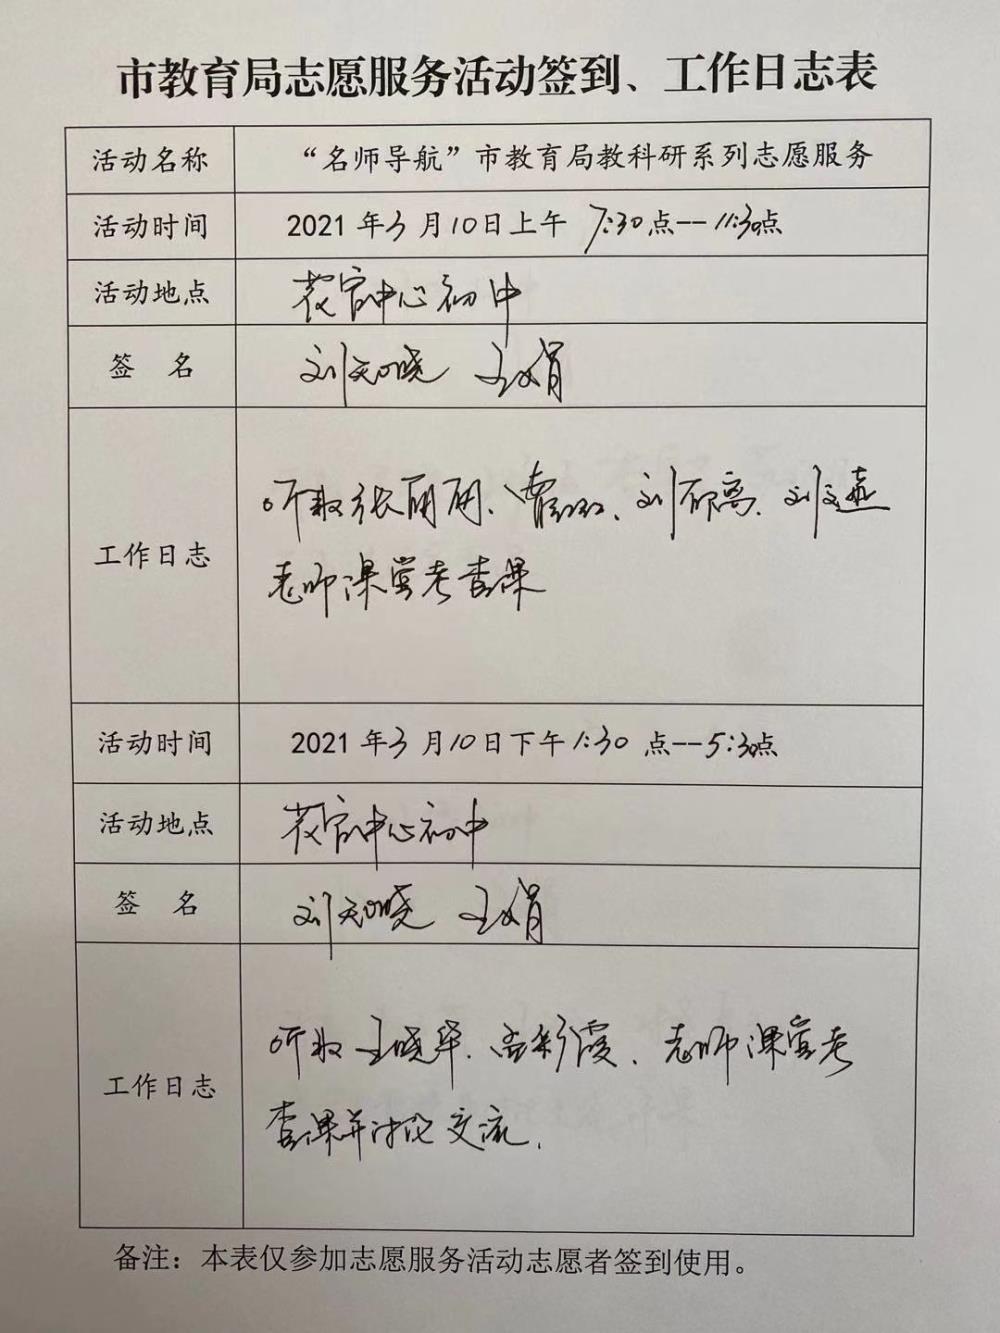 市教育局志愿服务活动签到、工作日志表
活动名称 “名师导航”市教育局教科研系列志愿服务
活动时间 2021 年 3 月 10 日上午 7:30 点--11:30点
活动地点 花官中心初中
签 名 刘知晓 王文娟
工作日志
听取张丽丽、曹、刘、刘
老师课堂考查课
活动时间 2021 年 3 月 10 日下午 1:30 点--5:30点
活动地点 花官中心初中
签 名 刘知晓 王文娟
工作日志
听取王晓华、彩霞、老师课堂考
查课并讨论交流.
备注：本表仅参加志愿服务活动志愿者签到使用。